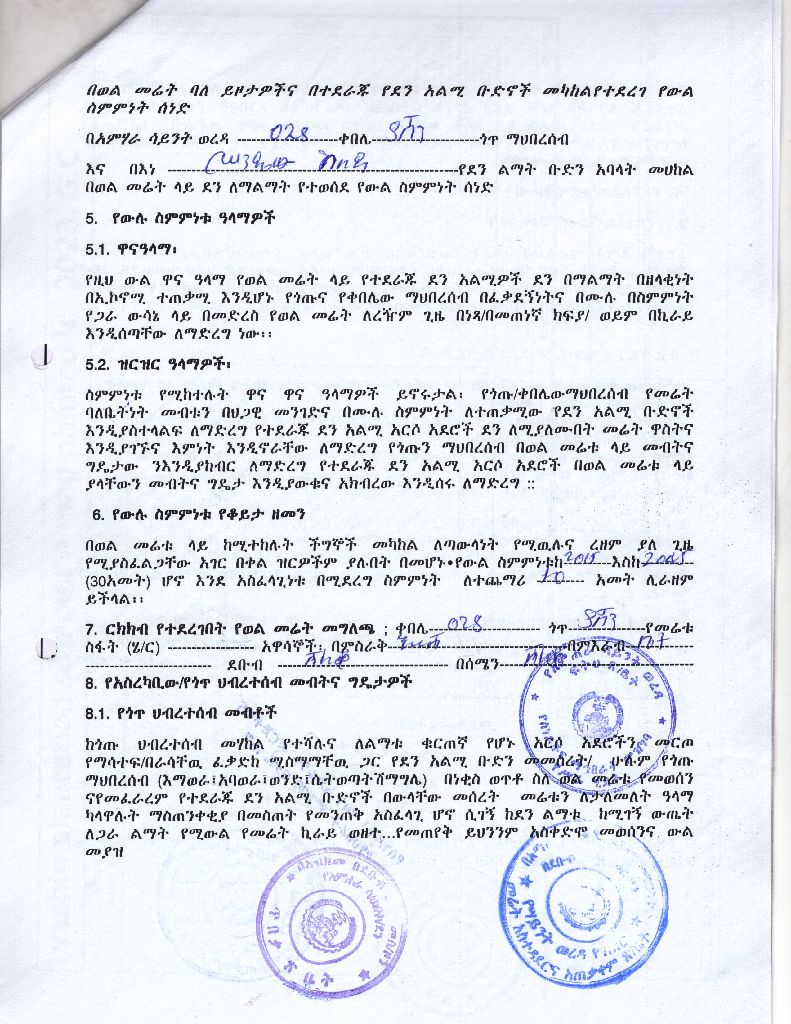 በወል መሬት ባለ ይዞታዎችና በተደራጁ የደን አልሚ ቡድኖች መካከልየተደረገ የውል
ስምምነት ሰነድ
በአምሃራ ሳይንት ወረዳ ------------------028--------ቀበሌ-----------------------ጎጥ ማህበረሰብ
እና በእነ ----------------------------------------------------የደን ልማት ቡድን አባላት መሀከል
በወል መሬት ላይ ደን ለማልማት የተወሰደ የውል ስምምነት ሰነድ
5. የውሉ ስምምነቱ ዓላማዎች
5.1. ዋናዓላማ፡
የዚህ ውል ዋና ዓላማ የወል መሬት ላይ የተደራጁ ደን አልሚዎች ደን በማልማት በዘላቂነት
በኢኮኖሚ ተጠቃሚ እንዲሆኑ የጎጡና የቀበሌው ማህበረሰብ በፈቃደኝነትና በሙሉ በስምምነት
የጋራ ውሳኔ ላይ በመድረስ የወል መሬት ለረዥም ጊዜ በነጻ/በመጠነኛ ክፍያ/ ወይም በኪራይ
እንዲሰጣቸው ለማድረግ ነው፡፡
5.2. ዝርዝር ዓላማዎች፡
ስምምነቱ የሚከተሉት ዋና ዋና ዓላማዎች ይኖሩታል፡ የጎጡ/ቀበሌውማህበረሰብ የመሬት
ባለቤትነት መብቱን በህጋዊ መንገድና በሙሉ ስምምነት ለተጠቃሚው የደን አልሚ ቡድኖች
እንዲያስተላልፍ ለማድረግ የተደራጁ ደን አልሚ አርሶ አደሮች ደን ለሚያለሙበት መሬት ዋስትና
እንዲያገኙና እምነት እንዲኖራቸው ለማድረግ የጎጡን ማህበረሰብ በወል መሬቱ ላይ መብትና
ግዴታው ንእንዲያከብር ለማድረግ የተደራጁ ደን አልሚ አርሶ አደሮች በወል መሬቱ ላይ
ያላቸውን መብትና ግዴታ እንዲያውቁና አክብረው እንዲሰሩ ለማድረግ ::
6. የውሉ ስምምነቱ የቆይታ ዘመን
በወል መሬቱ ላይ ከሚተከሉት ችግኞች መካከል ለጣውላነት የሚዉሉና ረዘም ያለ ጊዜ
የሚያስፈልጋቸው አገር በቀል ዝርዮችም ያሉበት በመሆኑ•የውል ስምምነቱከ2015---እስከ2045--
(30አመት) ሆኖ እንደ አስፈላጊነቱ በሚደረግ ስምምነት ለተጨማሪ --10------ አመት ሊራዘም
ይችላል፡፡
7. ርክክብ የተደረገበት የወል መሬት መግለጫ ; ቀበሌ----028------------- ጎጥ----------------የመሬቱ
ስፋት (ሄ/ር) ----------------- አዋሳኞች፡ በምስራቅ-------------------------በምእራብ
------------------------- ደቡብ ------------------------------ በሰሜን------------------------------
8. የአስረካቢው/የጎጥ ህብረተሰብ መብትና ግዴታዎች
8.1. የጎጥ ህብረተሰብ መብቶች
ከጎጡ ህብረተሰብ መሃከል የተሻሉና ለልማቱ ቁርጠኛ የሆኑ አርሶ አደሮችን መርጦ
የማሳተፍ/በራሳቸዉ ፈቃድከ ሚስማማቸዉ ጋር የደን አልሚ ቡድን መመስረት/ ሁሉም የጎጡ
ማህበረሰብ (እማወራ፣አባወራ፣ወንድ፣ሴትወጣትሽማግሌ) በነቂስ ወጥቶ ስለ ወል መሬቱ የመወሰን
ናየመፈራረም የተደራጁ ደን አልሚ ቡድኖች በውላቸው መሰረት መሬቱን ለታለመለት ዓላማ
ካላዋሉት ማስጠንቀቂያ በመስጠት የመንጠቅ አስፈላጊ ሆኖ ሲገኝ ከደን ልማቱ ከሚገኝ ውጤት
ለጋራ ልማት የሚውል የመሬት ኪራይ ወዘተ...የመጠየቅ ይህንንም አስቀድሞ መወሰንና ውል
መያዝ